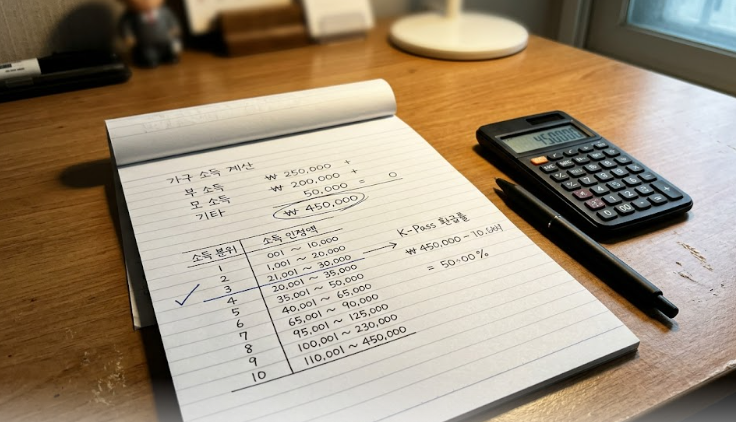 가구 소득 계산
부 소득 ₩ 250,000 +
모 소득 ₩ 200,000 +
기타 50,000 = 0
₩ 450,000
소득 분위 소득 인정액
1 001 ~ 10,000
2 1,001 ~ 20,000
3 21,001 ~ 30,000
4 20,001 ~ 35,000
5 35,001 ~ 50,000
6 40,001 ~ 65,000
7 65,001 ~ 90,000
8 95,001 ~ 125,000
9 100,001 ~ 230,000
10 110,001 ~ 450,000
K-Pass 환급률
₩ 450,000 -
= 50~00%